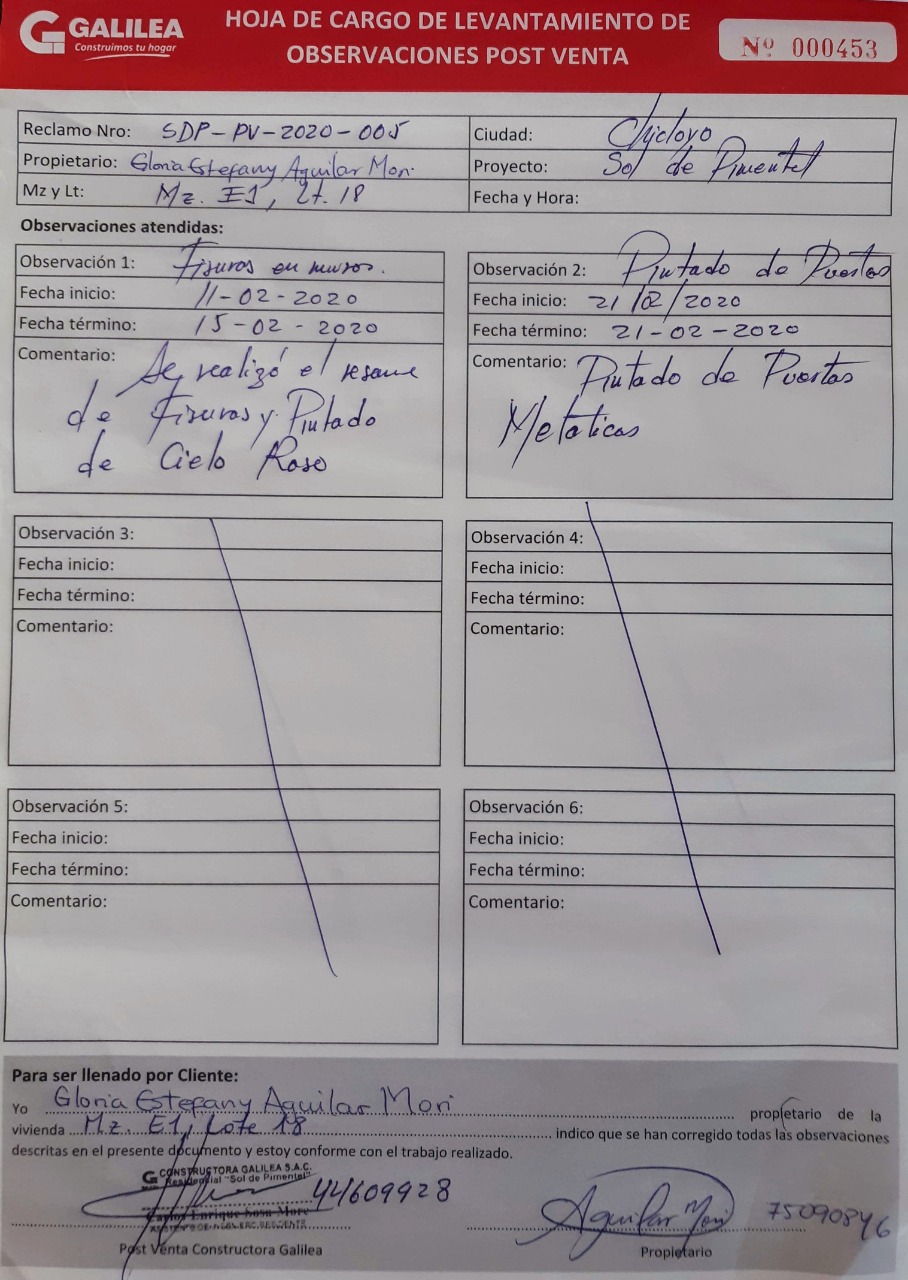 GALILEA
Construimos tu hogar
HOJA DE CARGO DE LEVANTAMIENTO DE
OBSERVACIONES POST VENTA
Nº 000453
Reclamo Nro: SDP-PV-2020-005
Ciudad: Chiclayo
Propietario: Gloria Estefany Aguilar Mori
Proyecto: Sol de Pimentel
Mz y Lt: Mz. E1, Lt. 18
Fecha y Hora:
Observaciones atendidas:
Observación 1: Fisuras en muros.
Fecha inicio: 11-02-2020
Fecha término: 15-02-2020
Comentario: Se realizó el resane
de Fisuras y Pintado
de Cielo Raso
Observación 2: Pintado de Puertas
Fecha inicio: 21/02/2020
Fecha término: 21-02-2020
Comentario: Pintado de Puertas
Metalicas
Observación 3:
Fecha inicio:
Fecha término:
Comentario:
Observación 4:
Fecha inicio:
Fecha término:
Comentario:
Observación 5:
Fecha inicio:
Fecha término:
Comentario:
Observación 6:
Fecha inicio:
Fecha término:
Comentario:
Para ser llenado por Cliente:
Yo Gloria Estefany Aguilar Mori propietario de la
vivienda Mz. E1, Lote 18 indico que se han corregido todas las observaciones
descritas en el presente documento y estoy conforme con el trabajo realizado.
CONSTRUCTORA GALILEA S.A.C.
Residencial "Sol de Pimentel"
44609928
Carlos Enrique Sosa More
Aguilar Mori 75090846
Post Venta Constructora Galilea
Propietario